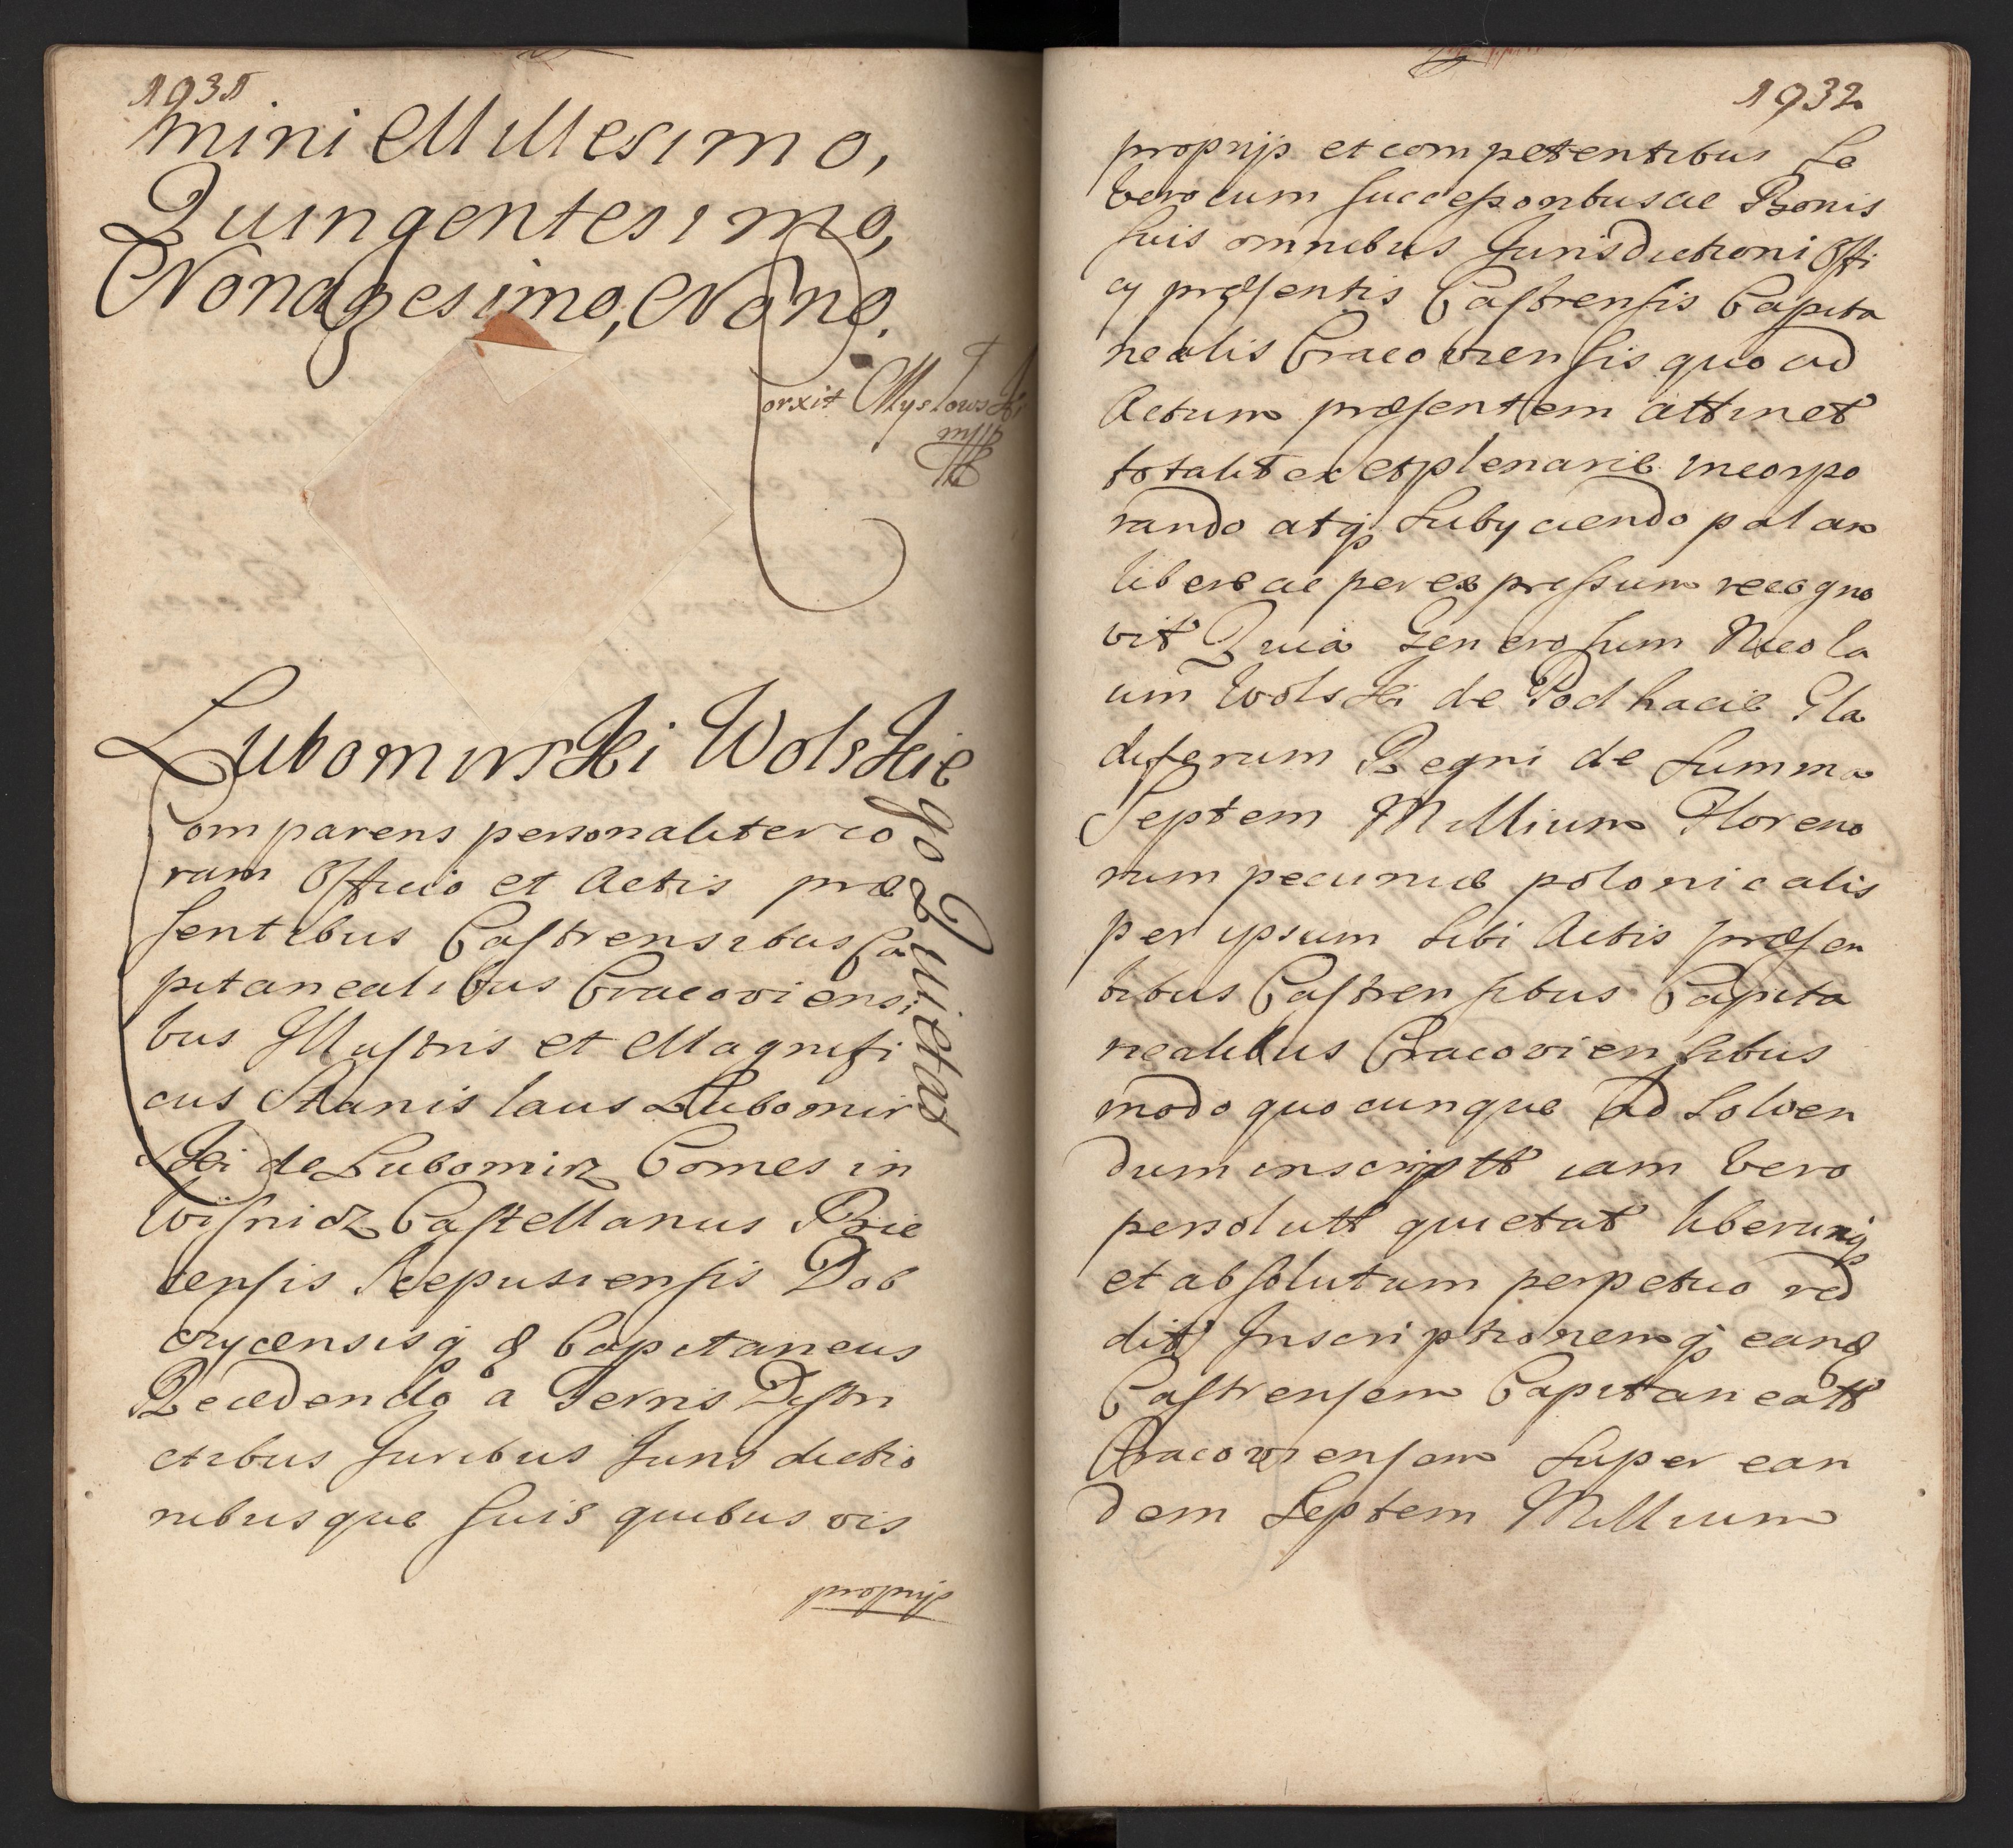 1931
mini Millesimo,
Quingentesimo,
Nonagesimo, Nono.
orxit Myslowski
mpp
Lubomirski Wolskie
go Quietat
Comparens personaliter co
ram Officio et Actis præ
sentibus Castrensibus Ca
pitanealibus Cracoviensi
bus Illustris et Magnifi
cus Stanislaus Lubomir
ski de Lubomirz Comes in
Wisnicz Castellanus Woie
censis Scepusiensis Dob
czycensisq & Capitaneus
Recedendo a Terris Distri
ctibus Juribus Jurisdictio
nibusque suis quibusvis
1932
proprijs et competentibus Se
vero cum successoribus ac Bonis
suis omnibus Jurisdictioni Offi
cij præsentis Castrensis Capita
nealis Cracoviensis quo ad
Actum præsentem attinet
totaliter et plenarie incorpo
rando atq Subijciendo palam
libere ac per expressum recogno
vit Quia Generosum Nicola
um Wolski de Podhaice Gla
diferum Regni de Summa
Septem Millium Floreno
rum pecuniæ polonicalis
per ipsum sibi Actis præsen
tibus Castrensibus Capita
nealibus Cracoviensibus
modo quocunque ad Solven
dum inscriptt iam vero
persolutt quietat liberumq
et absolutum perpetuo red
dit Inscriptionemq eand
Castrensem Capitaneatt
Cracoviensem super ean
dem Septem Millium